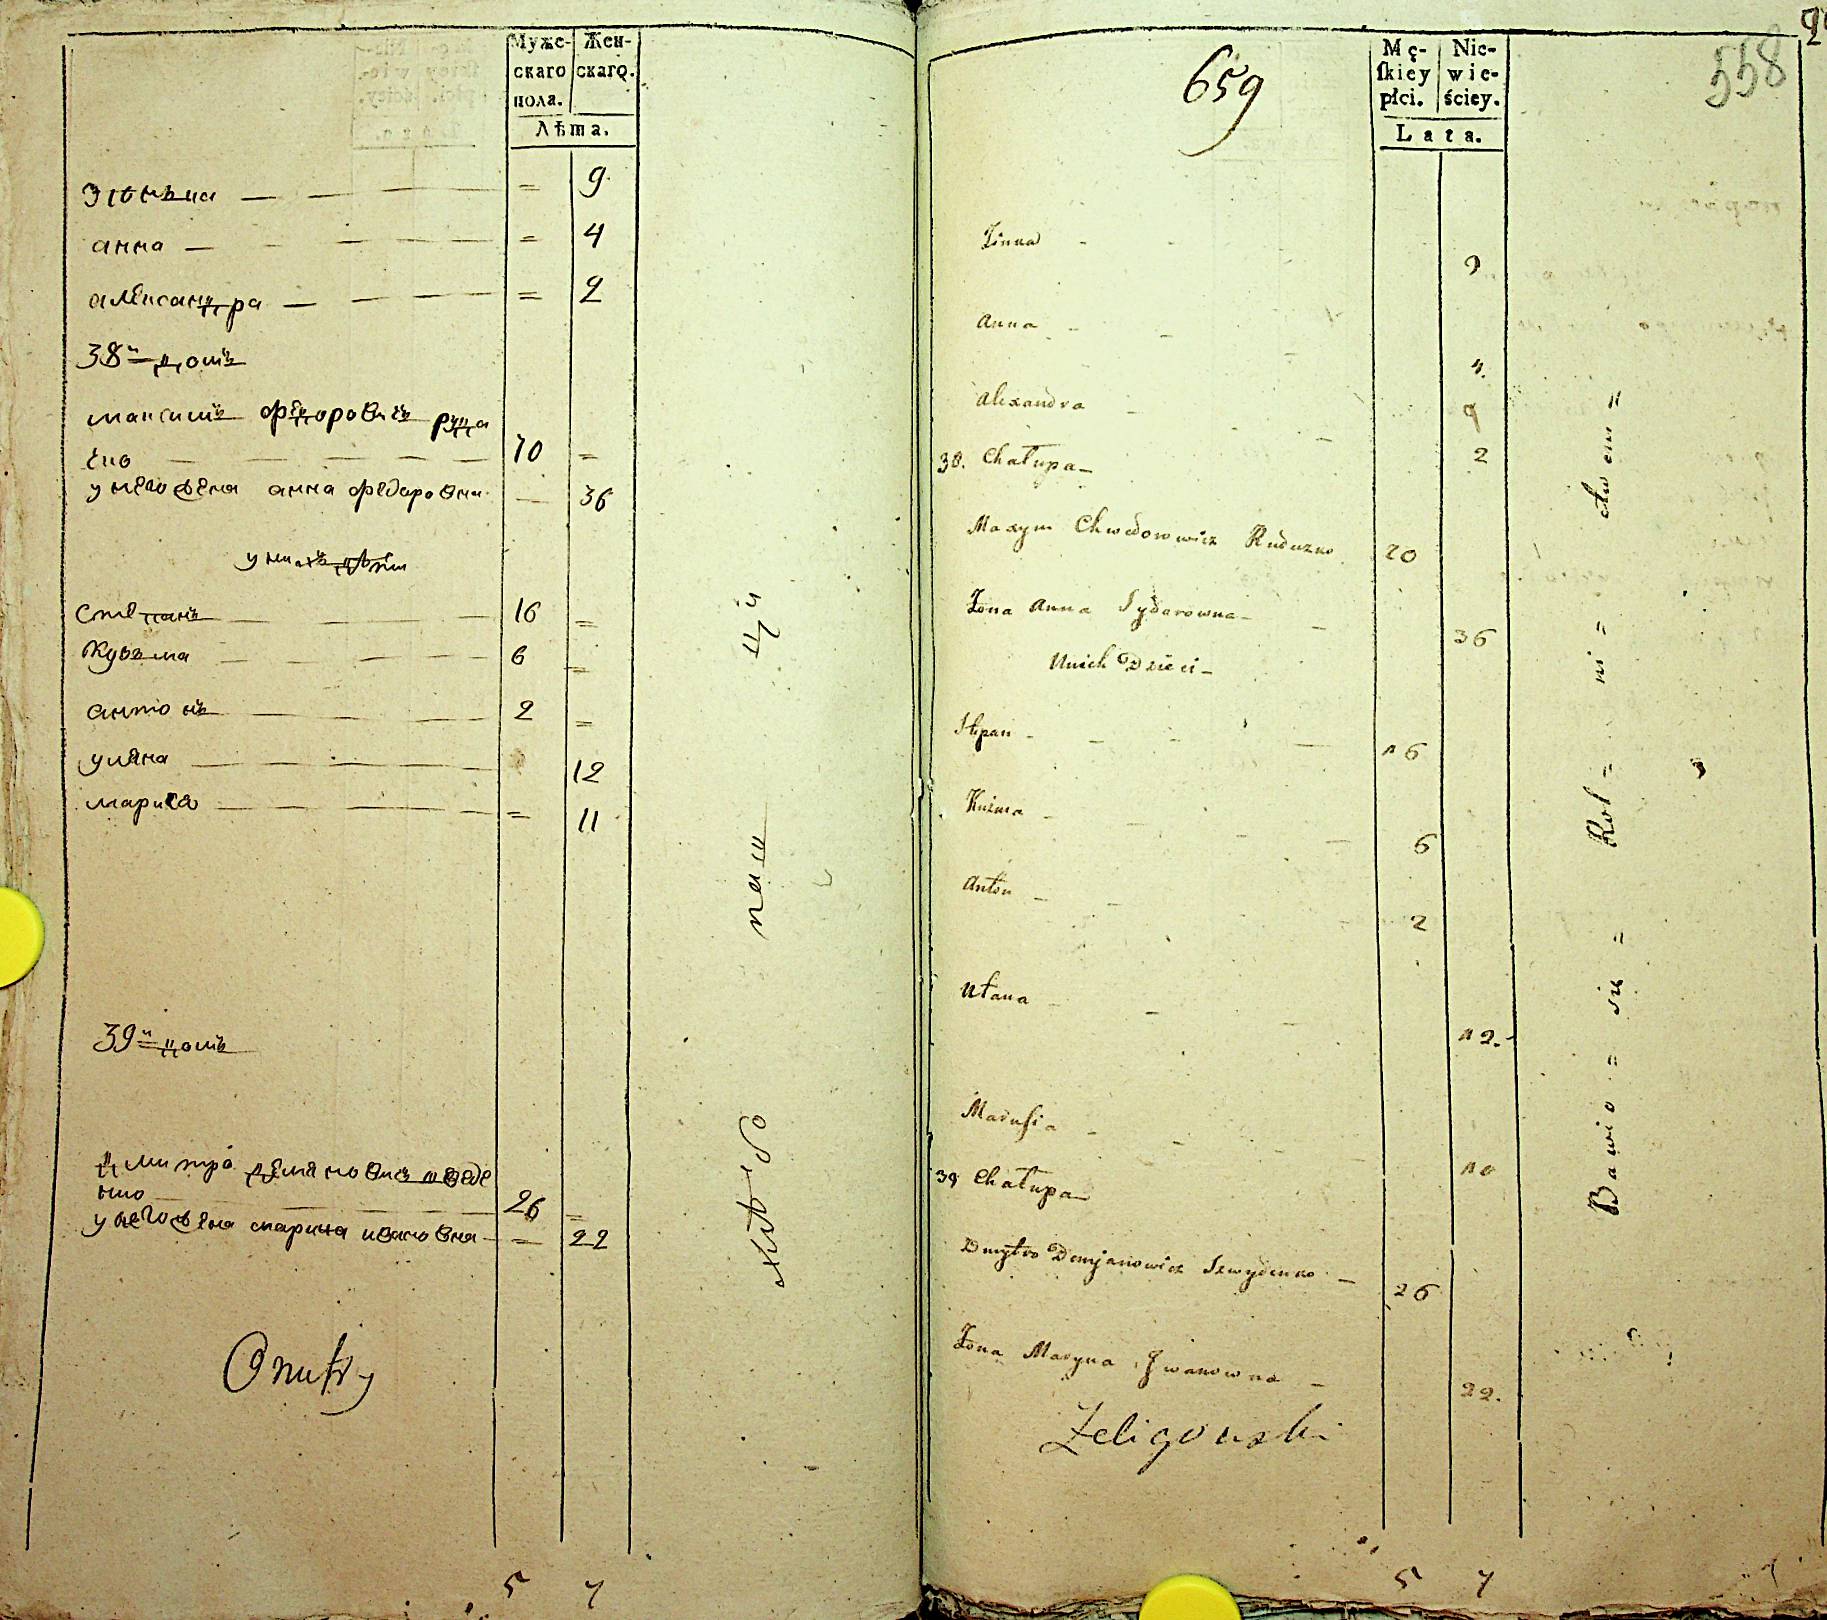 Муже-
скаго
пола.
Жен-
скаго.
Лѣта.
= 9
анна = 4
александра = 2
38й домъ
максимъ федоровичъ рудз
ько 70 =
у него жена анна федоровна 36
у нихъ дѣти
степанъ 16 =
Кузьма 6 =
антонъ 2 =
уляна 12
мариса = 11
39й домъ
дмитро демяновичъ шведе
нко 26 =
у него жена марина ивановна = 22
5 7
659
558
Mę-
ſkiey
płci.
Nie-
wie-
ściey.
Lata.
Zinna 9
Anna 4.
Alexandra 2
38. Chałupa
Maxym Chwedorowicz Ruduzko 20
Żona Anna Sydorowna 36
Unich Dzieci
Stepan 16
Kuźma 6
Anton 2
Ułana 12.
Marusia 10
39 Chałupa
Dmytro Demjanowicz Szwydenko 26
Żona Maryna Iwanowna 22.
Żeligowski
Bawio = się = Rol = ni = ctwem =
5 7